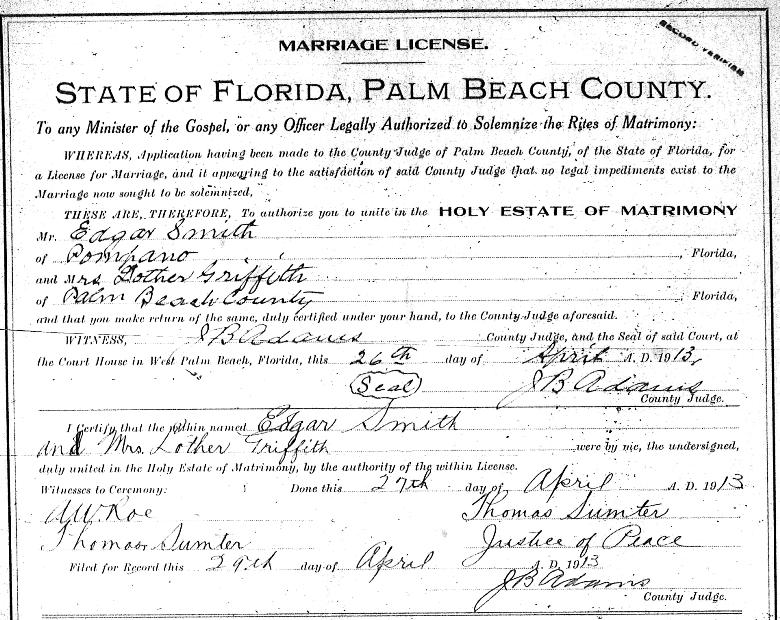 RECORD VERIFIED
MARRIAGE LICENSE.
STATE OF FLORIDA, PALM BEACH COUNTY.
To any Minister of the Gospel, or any Officer Legally Authorized to Solemnize the Rites of Matrimony:
WHEREAS, Application having been made to the County Judge of Palm Beach County, of the State of Florida, for
a License for Marriage, and it appearing to the satisfaction of said County Judge that no legal impediments exist to the
Marriage now sought to be solemnized,
THESE ARE, THEREFORE, To authorize you to unite in the HOLY ESTATE OF MATRIMONY
Mr. Edgar Smith
of Pompano, Florida,
and Mrs Lother Griffith
of Palm Beach County Florida,
and that you make return of the same, duly certified under your hand, to the County Judge aforesaid.
WITNESS, J B Adams County Judge, and the Seal of said Court, at
the Court House in West Palm Beach, Florida, this 26th day of April A. D. 1913,
(Seal) J B Adams
County Judge.
I Certify that the within named Edgar Smith
and Mrs. Lother Griffith were by me, the undersigned,
duly united in the Holy Estate of Matrimony, by the authority of the within License.
Witnesses to Ceremony: Done this 27th day of April A. D. 1913
Thomas Sumter
Thomas Sumter Justice of Peace
Filed for Record this 29th day of April A. D. 1913
J B Adams
County Judge.